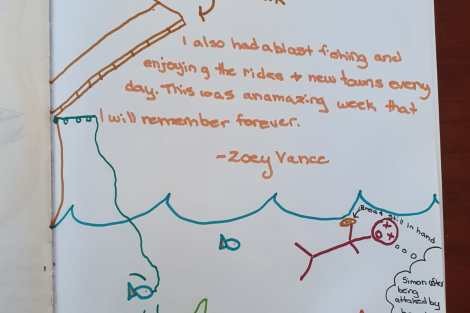 I also had a blast fishing and
enjoying the rides + new towns every
day. This was an amazing week that
I will remember forever.
-Zoey Vance
Bread still in hand
Simon after
being
attacked by